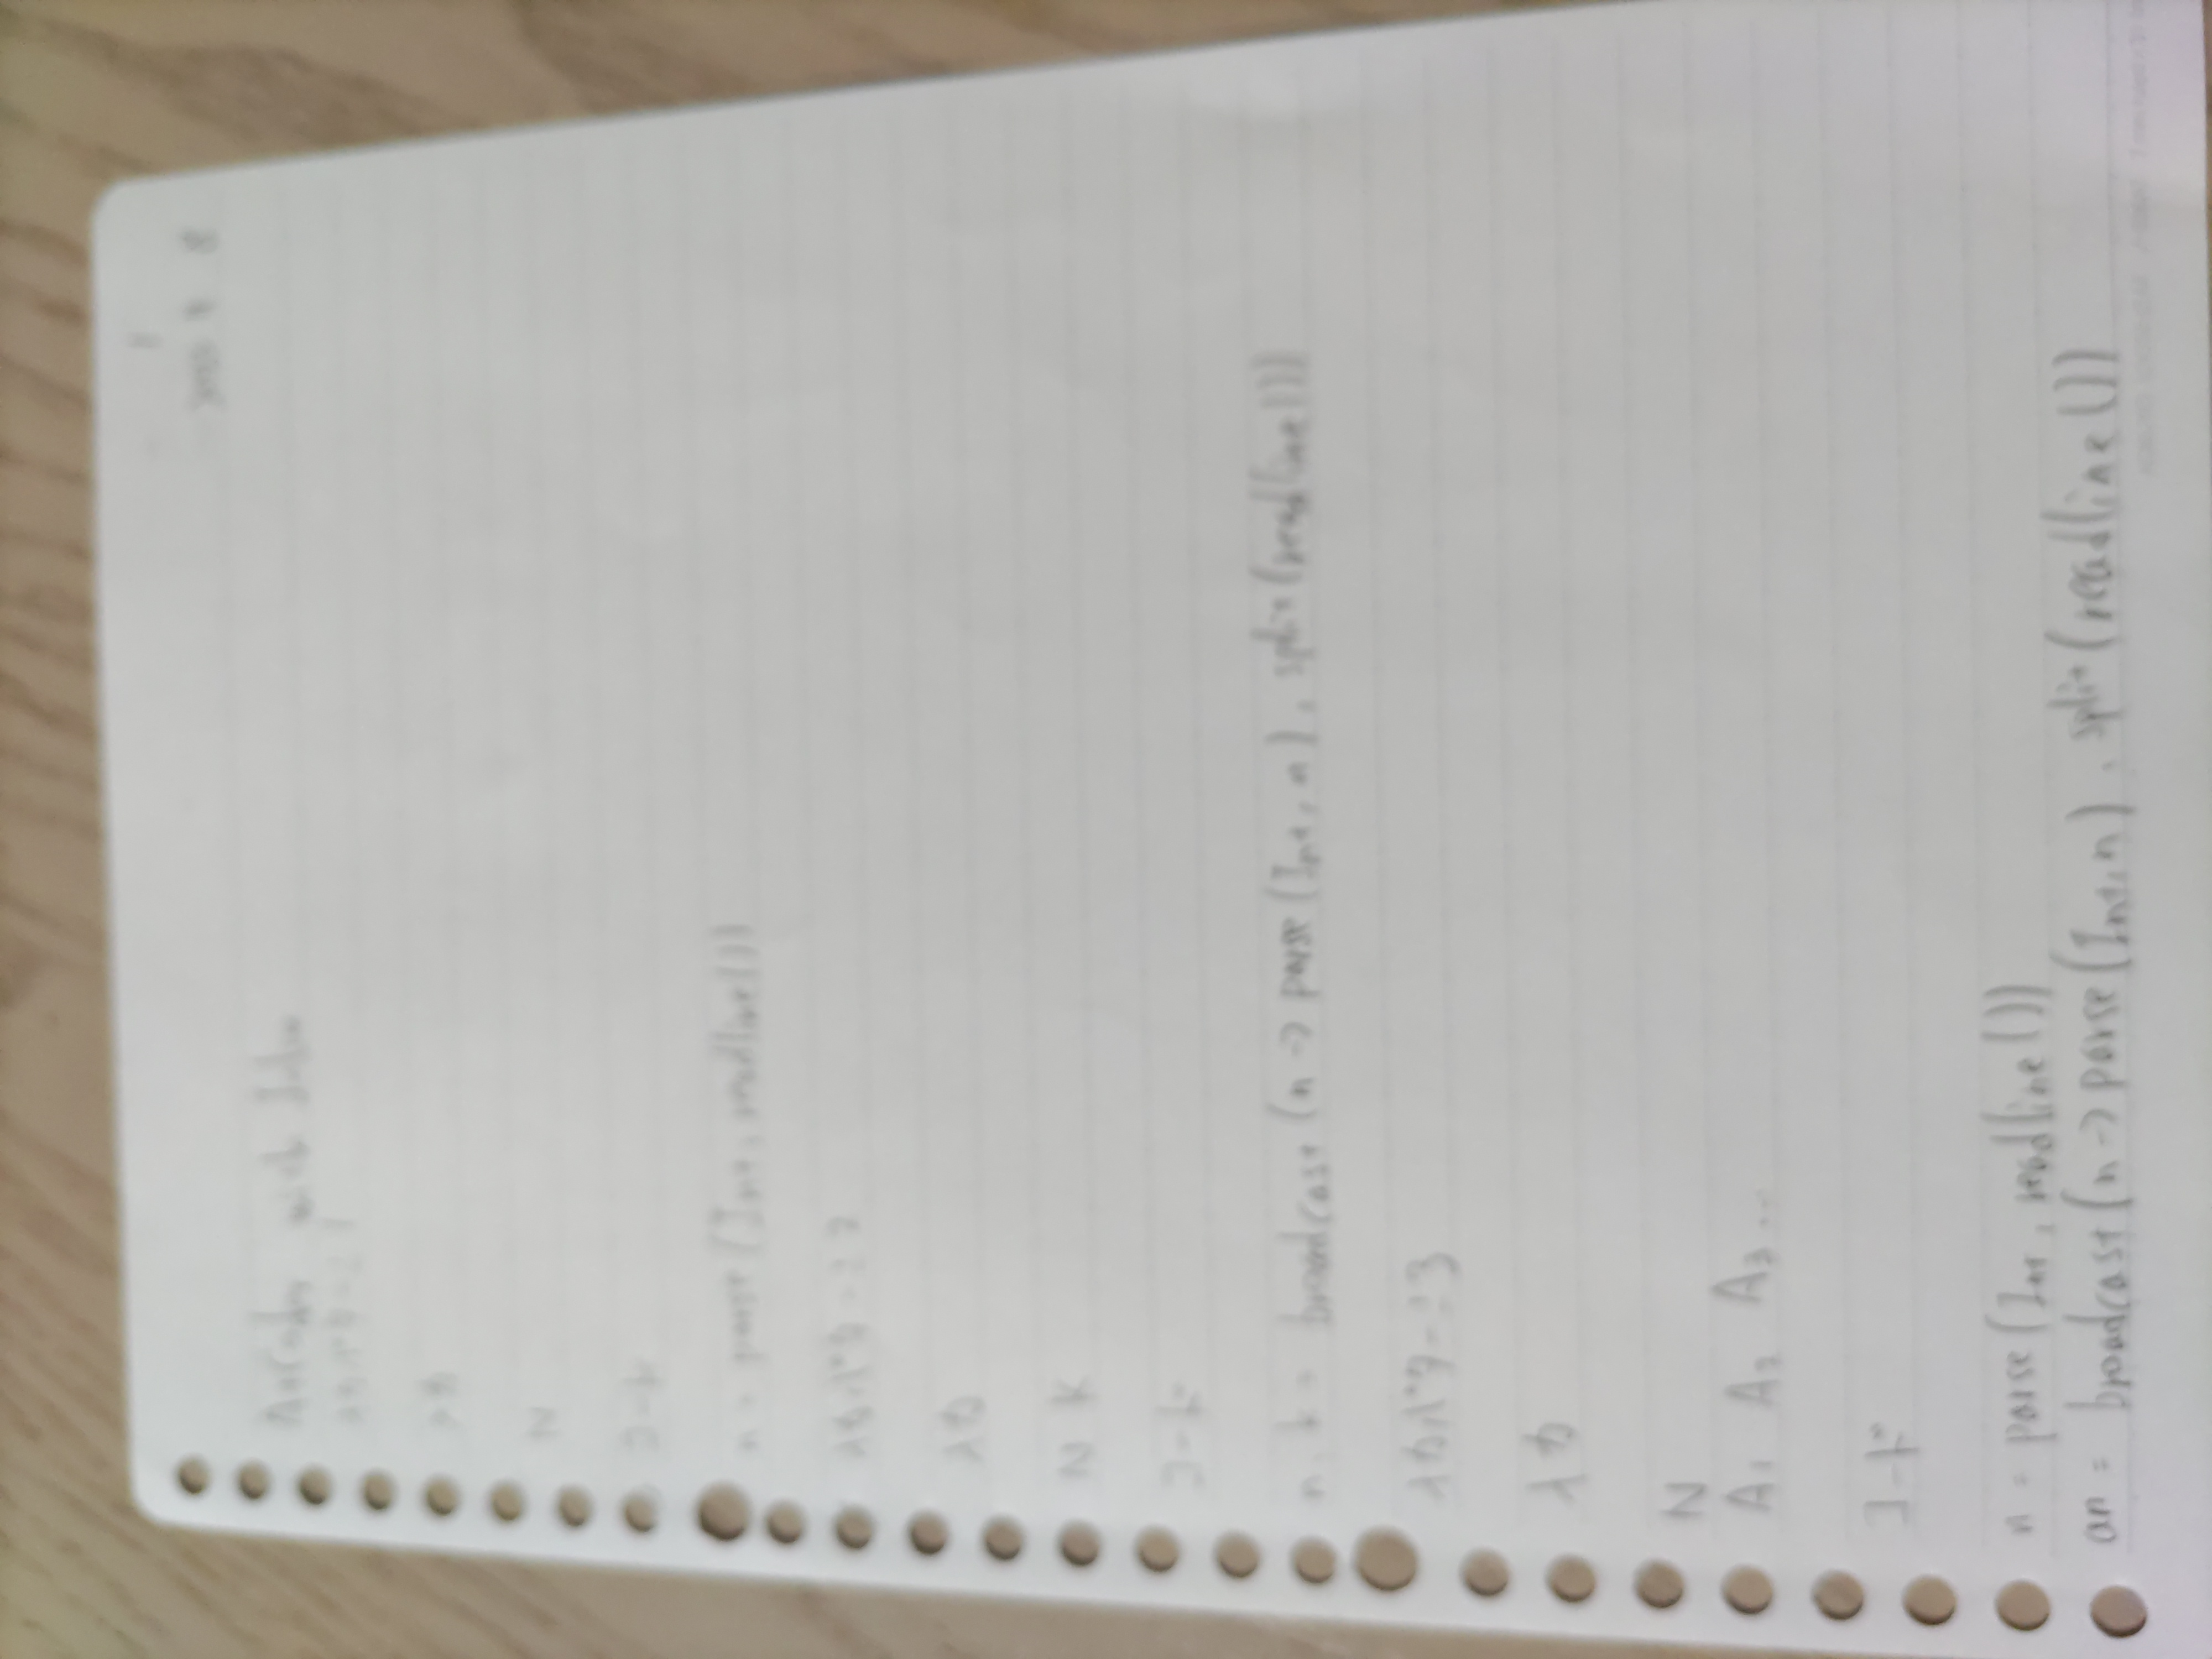 1
8
AtCoder with Julia
入力パターン1
入力
N
コード
n = parse(Int, readline())
入力パターン2
入力
N K
コード
n, k = broadcast(n -> parse(Int, n), split(readline()))
入力パターン3
入力
N
A1 A2 A3 ...
コード
n = parse(Int, readline())
an = broadcast(n -> parse(Int, n), split(readline()))